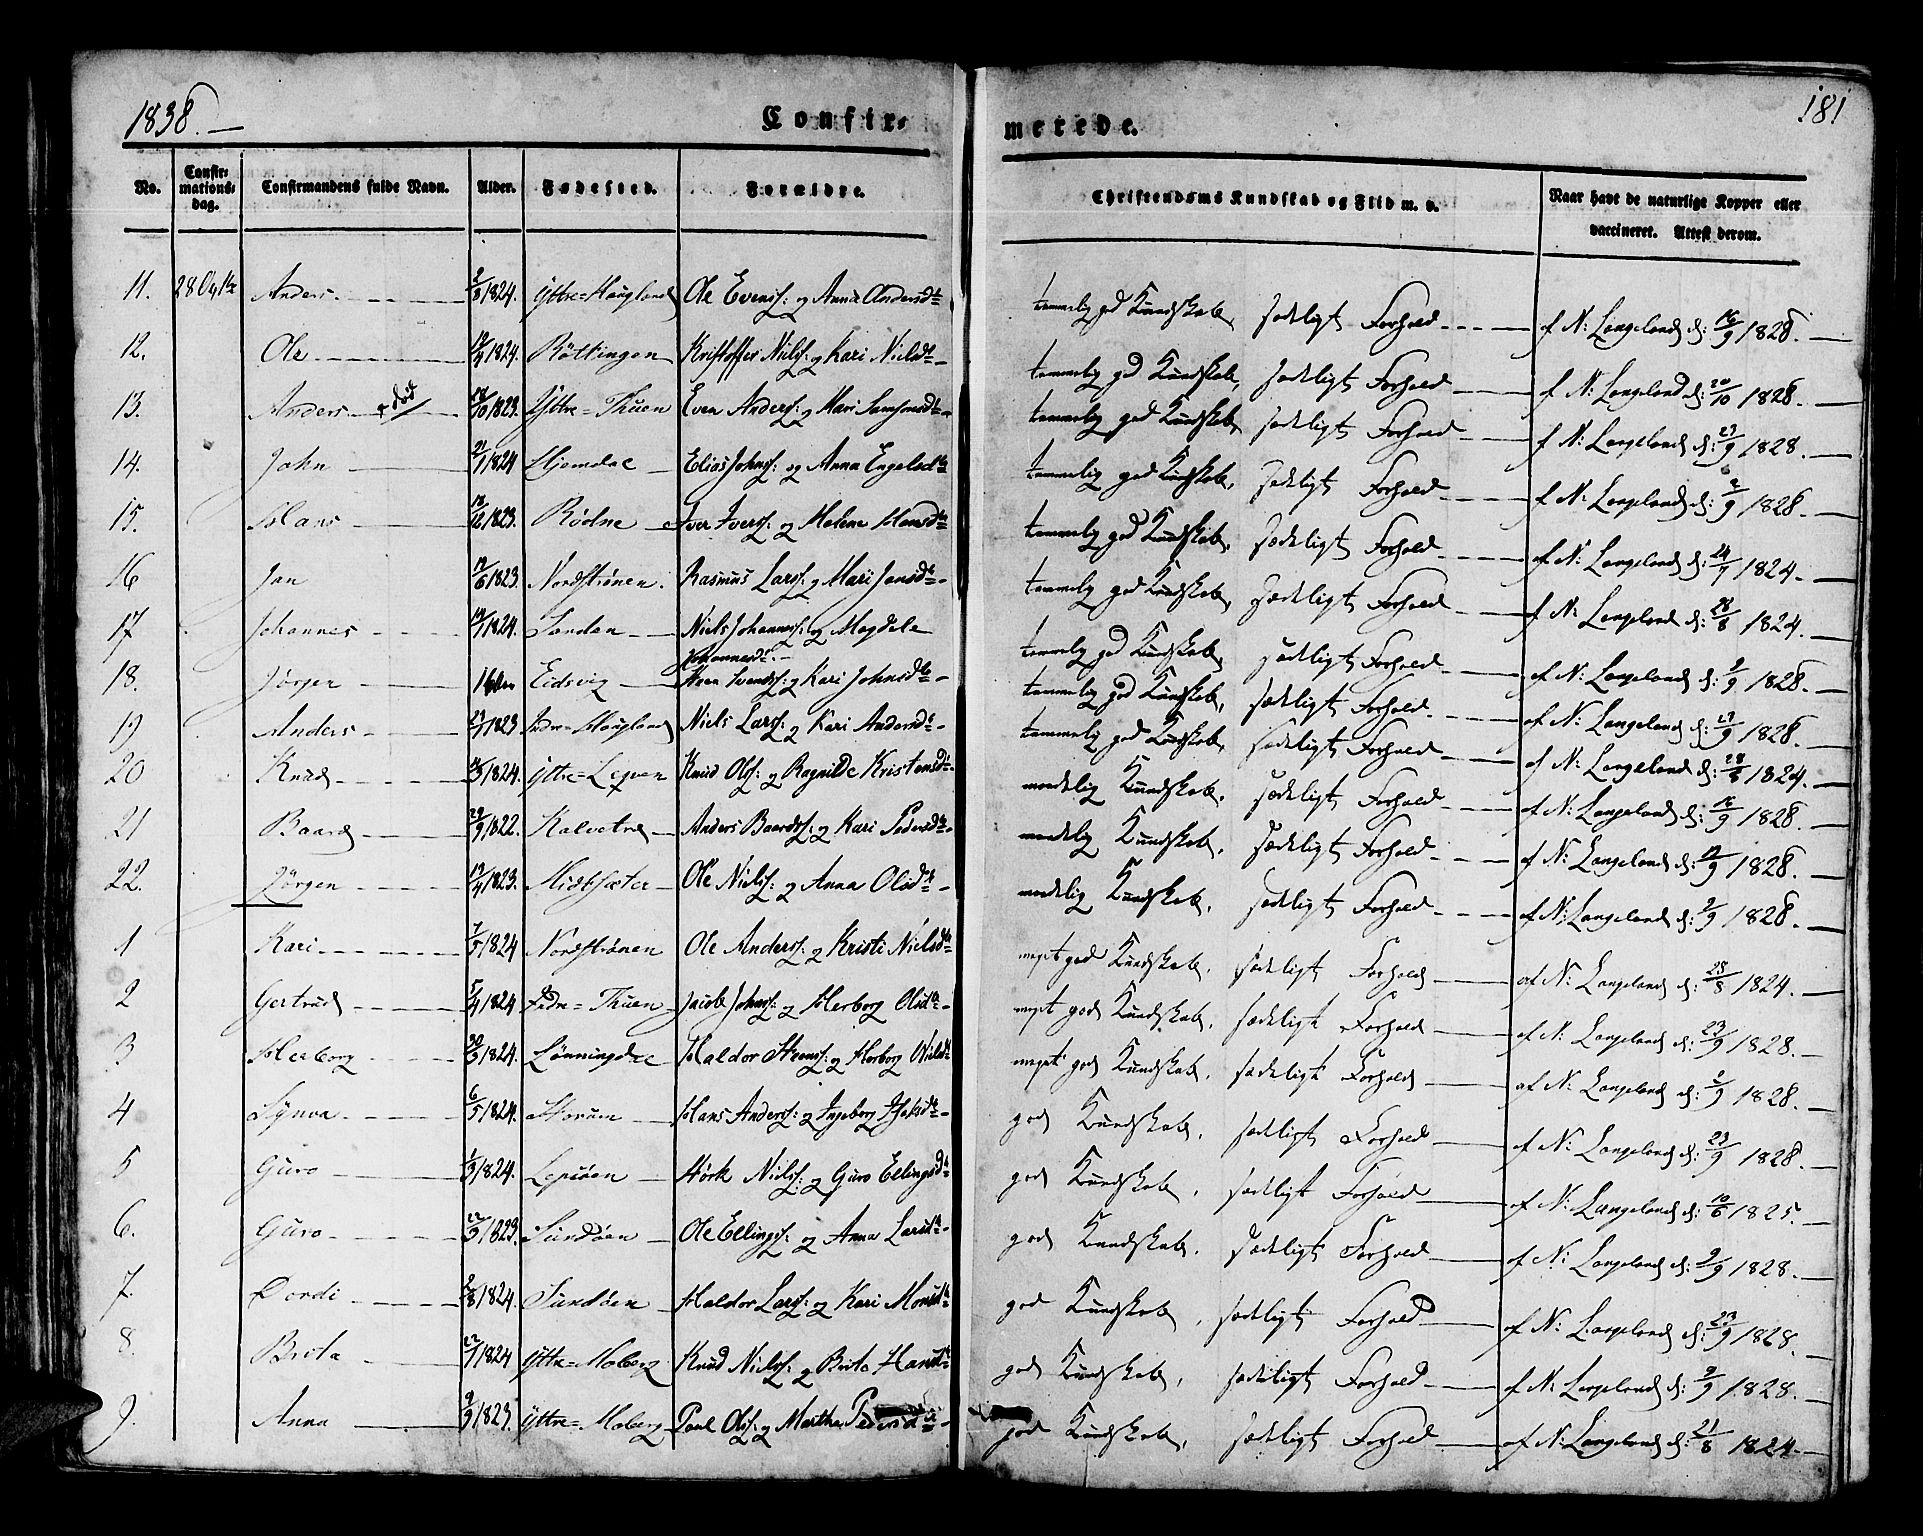 1838. 181
Confirmerede.
No. Confirmationsdag. Confirmandens fulde Navn. Alder. Fødested. Forældre. Christendoms Kundskab og Flid m. v. Naar havt de naturlige Kopper eller vaccineret. Attest derom.
11. 28 Anders 2/8 1824. Yttre=Hougland Ole Evens: og Anna Andersd: temmelig god Kundskab, sædeligt Forhold af N: Langeland d: 16/9 1828.
12. Ole 1824. Röttingen Kristoffer Niels: og Kari Nielsd: temmelig god Kundskab, sædeligt Forhold af N: Langeland d: 20/10 1828.
13. Anders død 18/10 1823. Yttre=Thuen Even Anders: og Mari Samsonsd: temmelig god Kundskab, sædeligt Forhold af N: Langeland d: 23/9 1828.
14. John 21/1 1824 Hjemdal Elias Johns: og Anna Engelsd: temmelig god Kundskab, sædeligt Forhold af N: Langeland d: 2/9 1828.
15. Hans 18/12 1823. Rödne Iver Ivers: og Malene Hansd: temmelig god Kundskab, sædeligt Forhold af N: Langeland d: 24/7 1824.
16 Jan 12/6 1823. Nordströnen. Rasmus Lars: og Mari Jansd: temmelig god Kundskab, sædeligt Forhold af N: Langeland d: 28/8 1824.
17 Johannes 19/1 1824. Sanden Niels Johannes: og Magdele Johannesd: temmelig god Kundskab, sædeligt Forhold af N: Langeland d: 2/9 1828.
18. Jörgen Eidsvig Steen Svends: og Kari Johnsd: temmelig god Kundskab, sædeligt Forhold af N: Langeland d: 27/9 1828.
19 Anders 21/1 1823 Indre=Hougland Niels Lars: og Kari Andersd: temmelig god Kundskab, sædeligt Forhold af N: Langeland d: 28/8 1824.
20 Knud 1824. Yttre=Lepen Knud Ols: og Ragnilde Kristensd: maadelig Kundskab, sædeligt Forhold af N: Langeland d: 16/9 1828.
21 Baard 29/9 1822. Kalvetræ Anders Baards: og Kari Pedersd: maadelig Kundskab, sædeligt Forhold af N: Langeland d: 1828.
22. Jörgen 13/4 1823. Midtsæter Ole Niels: og Anna Olsd: maadelig Kundskab, sædeligt Forhold af N: Langeland d: 2/9 1828.
1 Kari 7/5 1824 Nordströnen Ole Anders: og Kristi Nielsd: meget god Kundskab, sædeligt Forhold af N: Langeland d: 28/8 1824.
2 Gertrud 5/4 1824 Indre=Thuen Jacob Johns: og Herborg Olsd: meget god Kundskab, sædeligt Forhold af N: Langeland d: 23/9 1828.
3 Herborg 30/3 1824. Lönningdal Haldor Steens: og Herborg Nielsd: meget god Kundskab, sædeligt Forhold af N: Langeland d: 2/9 1828.
4 Synva 6/5 1824. Storum Hans Anders: og Ingeborg Isaksd: god Kundskab, sædeligt Forhold af N: Langeland d: 23/9 1828.
5 Guro 1824. Lepsöen Störk Niels: og Guro Ellingsd: god Kundskab, sædeligt Forhold af N: Langeland d: 10/6 1825.
6. Guro 22/9 1823. Sundöen Ole Ellings: og Anna Larsd: god Kundskab, sædeligt Forhold af N: Langeland d: 2/9 1828.
7. Dordi 2/8 1824. Sundöen Haldor Lars: og Kari Monsd: god Kundskab, sædeligt Forhold af N: Langeland d: 23/9 1828.
8. Brita 22/1 1824 Yttre=Moberg Knud Niels: og Brita Hansd: god Kundskab, sædeligt Forhold af N: Langeland d: 2/9 1828.
9. Anna 9/9 1823. Yttre=Moberg Poul Ols: og Martha Pedersd: god Kundskab, sædeligt Forhold af N: Langeland d: 21/8 1824.